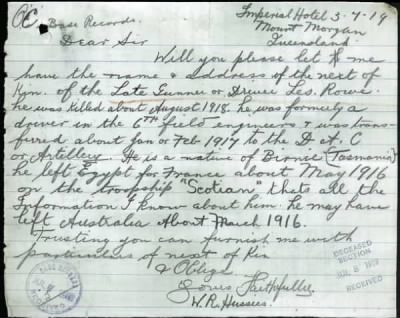 OC Base Records.
Imperial Hotel 3-7-19
Mount Morgan
Queensland
Dear Sir
Will you please let me
have the name & address of the next of
Kin. of the Late Gunner or Driver Les. Rowe.
he was Killed about August 1918. he was formerly a
driver in the 6TH field engineers & was trans-
fered about Jan or Feb 1917 to the D at. C
or Artillery. He is a native of Birnie (Tasmania)
he left Egypt for France about May 1916
on the troopship "Scotian" thats all the
Information I know about him. he may have
left Australia About March 1916.
Trusting you can furnish me with
particulars of next of Kin
& Oblige
Yours Faithfully
W.R.
DECEASED
SECTION
JUL 8 1919
RECEIVED
BASE RECORDS